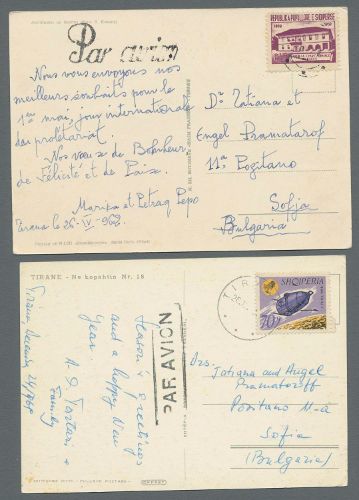 Par avion
REPUBLIKA POPULLORE E SHQIPERISE
Nous vous envoyons nos
meilleurs souhaits pour le
1er mai, jour internationale
du prolétariat.
Nos voeux de Bohneur,
de Félicité et de Paix.
Marika et Petraq Pepo
Tirana le 26-IV-1962
Dr Tatiana et
Engel Pramatarof
11a Pozitano
Sofja
Bulgaria
TIRANE - Ne kopshtin Nr. 18
SHQIPERIA
PAR AVION
Season's greetings
and a happy New
Year
Family
Drs.
Tatiana and Angel
Pramataroff
Positano 11-a
Sofia
(Bulgaria)